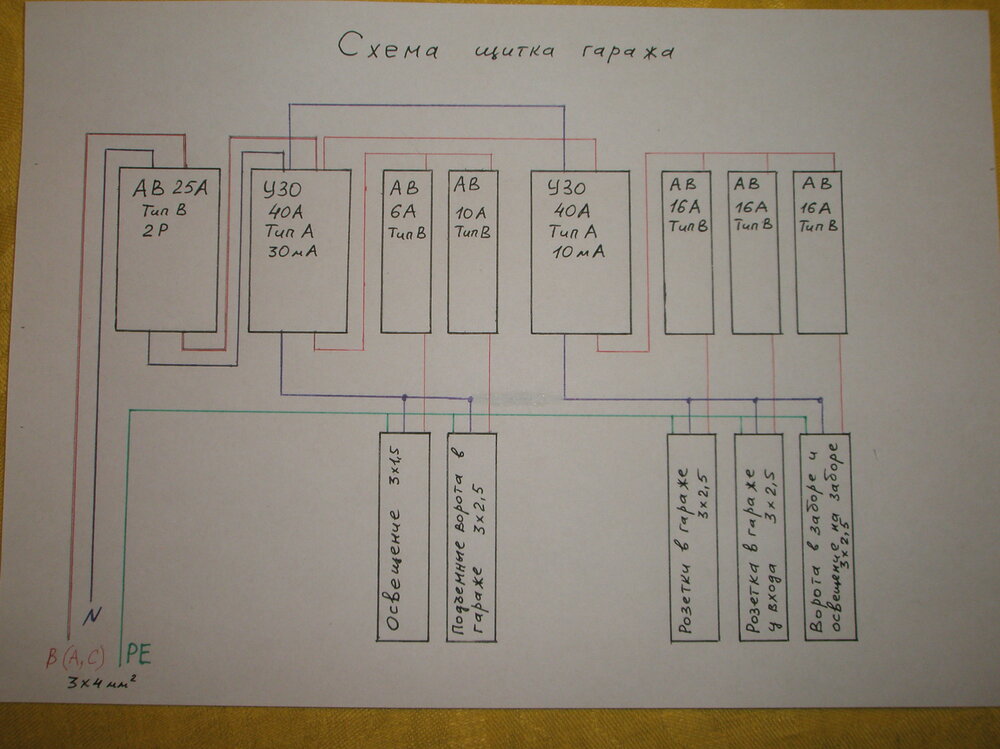 Схема щитка гаража
АВ 25А
Тип В
2Р
УЗО
40А
Тип А
30мА
АВ
6А
Тип В
АВ
10А
Тип В
УЗО
40А
Тип А
10мА
АВ
16А
Тип В
АВ
16А
Тип В
АВ
16А
Тип В
Освещение 3х1,5
Подъемные ворота в
гараже 3х2,5
Розетки в гараже
3х2,5
Розетка в гараже
у входа 3х2,5
Ворота в заборе и
освещение на заборе
3х2,5
N
В (А,С)
PE
3х4мм²